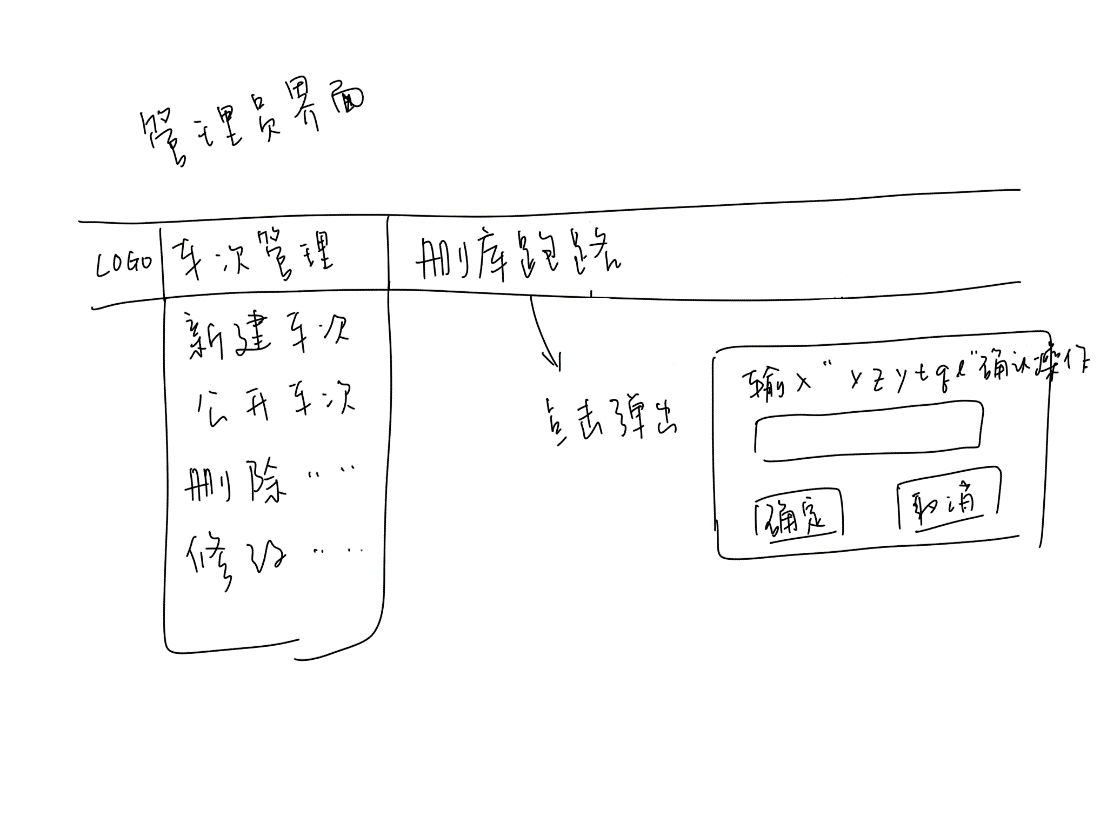 管理员界面
LOGO 车次管理 删库跑路
新建车次
公开车次
删除 ‥ ‥
修改 ‥ ‥
点击弹出
输入"xzytql"确认操作
确定 取消